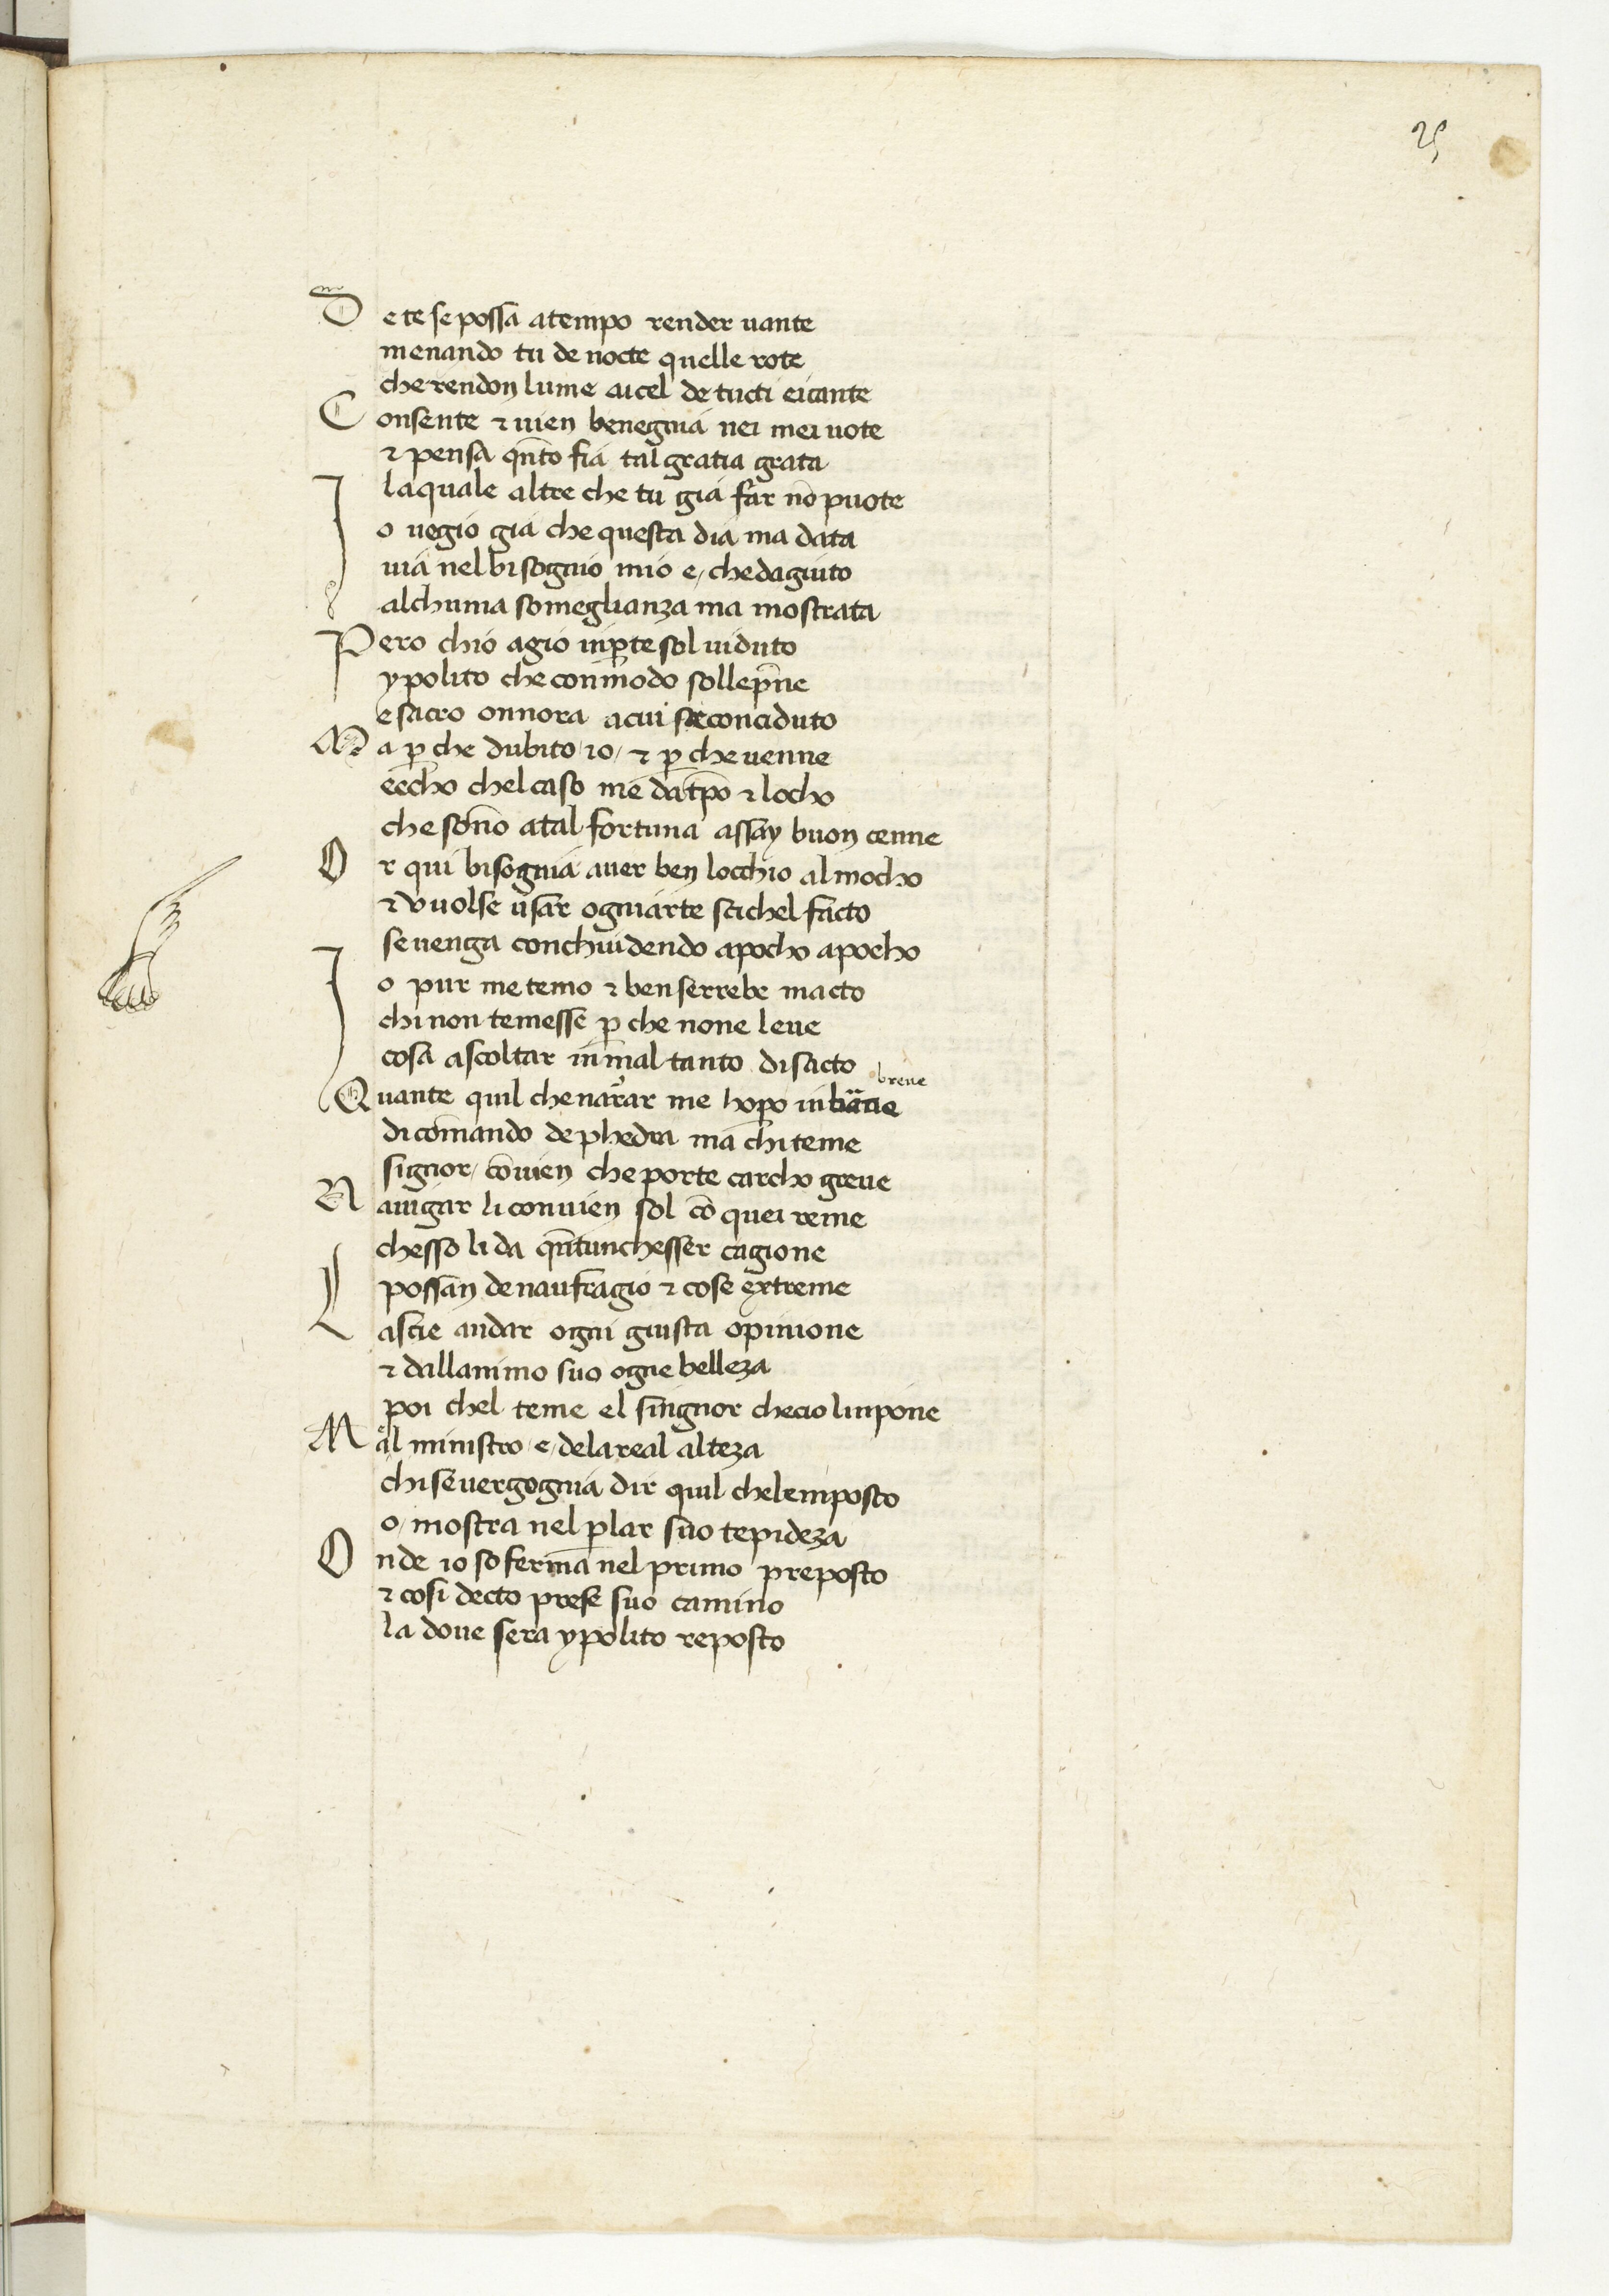 25
De te se possa atempo render uante
menando tu de nocte quelle rote
che rendon lume aicel de tucti eicante
Consente ⁊ uien benegnia nei mei uote
⁊ pensa qñto fia tal gratia grata
laquale altre che tu gia far nō puote
Io uegio gia che questa dia ma data
uia nel bisognio mio e / che dagiuto
alchuna someglianza ma mostrata
Pero chio agio inꝑte sol uiduto
ypolito che con modo sollepñe
e sacro onnora acui se conciduto
Ma ꝑ che dubito io / ⁊ ꝑ che uenne
eecho chel caso me da tp̄o ⁊ locho
che sōno atal fortuna assay buon cenne
Or qui bisognia auer ben locchio al mocho
⁊ vuolse usar ogniarte sci chel facto
se uenga conchiudendo apocho apocho
Io pur me temo ⁊ ben serrebe macto
chi non temesse ꝑ che none leue
cosa ascoltar in mal tanto disacto
breue
Quante quil che narrar me hopo in
di comando de phedra ma chi teme
signor / cōuien che porte carcho greue
Nauigar li conuien sol cō quei reme
chesso li da qñtunchesser cagione
possan de naufragio ⁊ cose extreme
Lascie andar ogni giusta opinione
⁊ dallanimo suo ogne belleza
poi chel teme el singnor checio linpone
Mal ministro e / dela real alteza
chi se uergognia dir quil chelemposto
o / mostra nel ꝑlar suo tepideza
Onde io so fermā nel primo preposto
⁊ cosi decto prese suo camino
la doue sera ypolito reposto